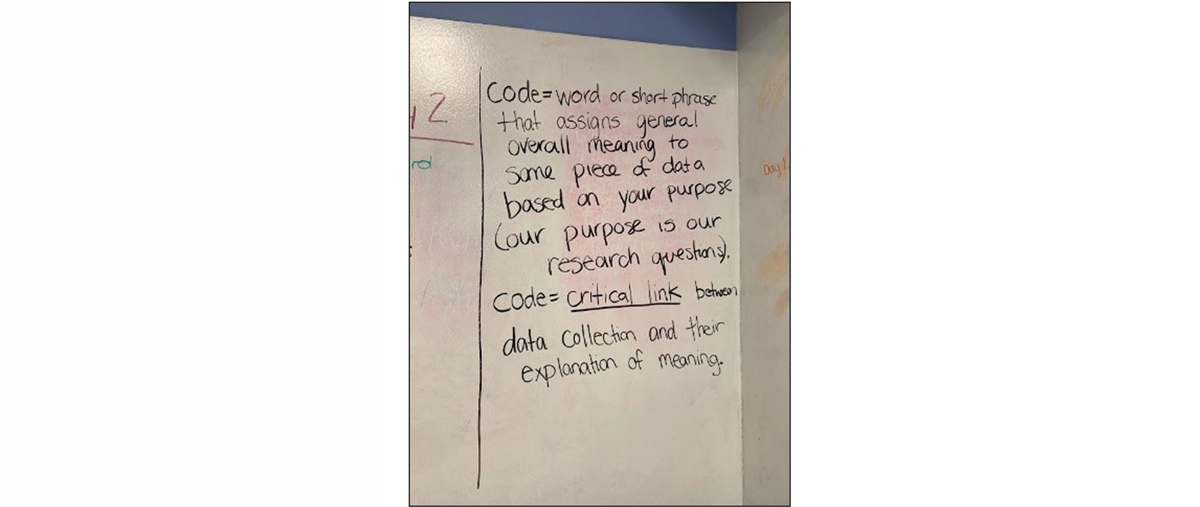 2
rd
Code = word or short phrase
that assigns general
overall meaning to
some piece of data
based on your purpose
(our purpose is our
research questions).
Code = critical link between
data collection and their
explanation of meaning.
Day 1